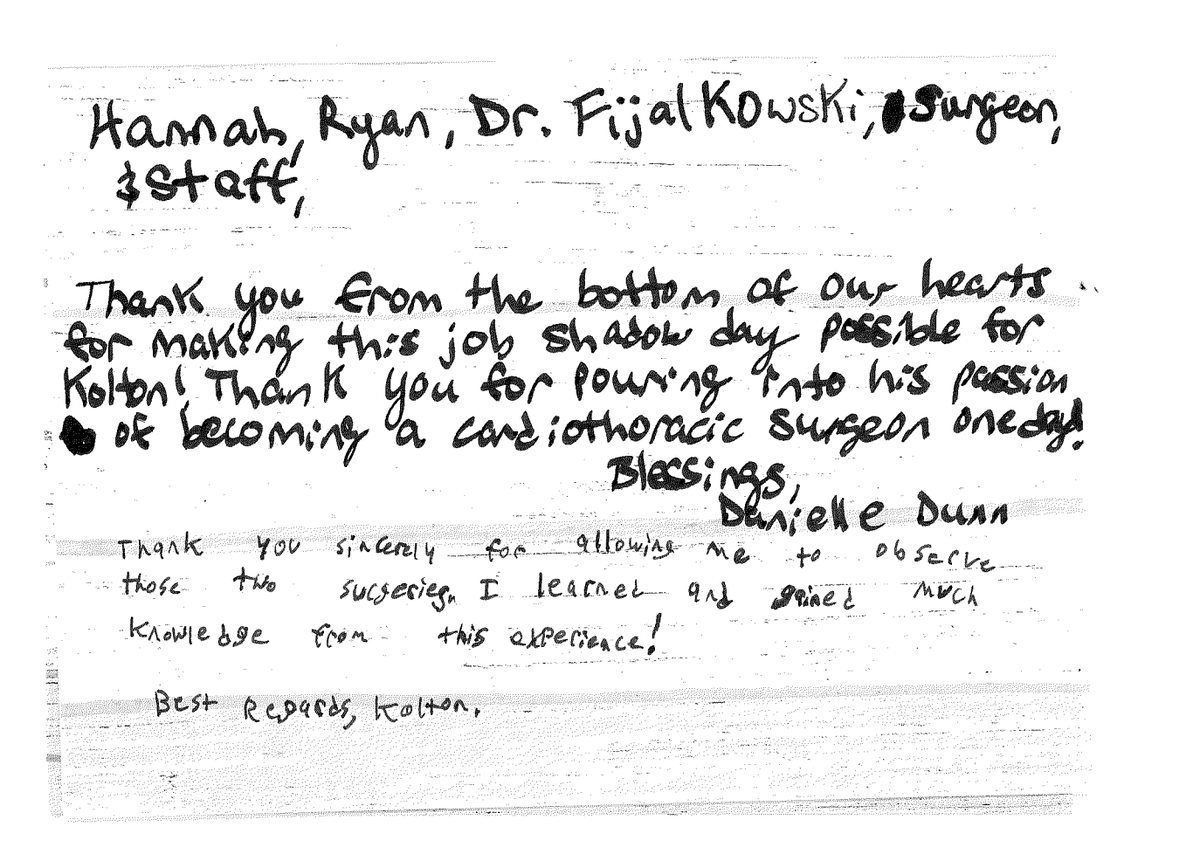 Hannah, Ryan, Dr. Fijalkowski, Surgeon,
& Staff,
Thank you from the bottom of our hearts
for making this job shadow day possible for
Kolton! Thank you for pouring into his passion
of becoming a cardiothoracic surgeon one day!
Blessings,
Danielle Dunn
Thank you sincerely for allowing me to observe
those two surgeries. I learned and gained much
knowledge from this experience!
Best Regards, Kolton.